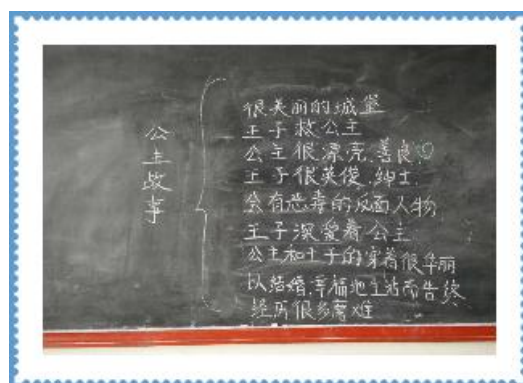 公主故事
很美丽的城堡
王子救公主
公主很漂亮、善良
王子很英俊、绅士
会有恶毒的反面人物
王子深爱着公主
公主和王子的穿着很华丽
以结婚、幸福地生活而告终
经历很多磨难